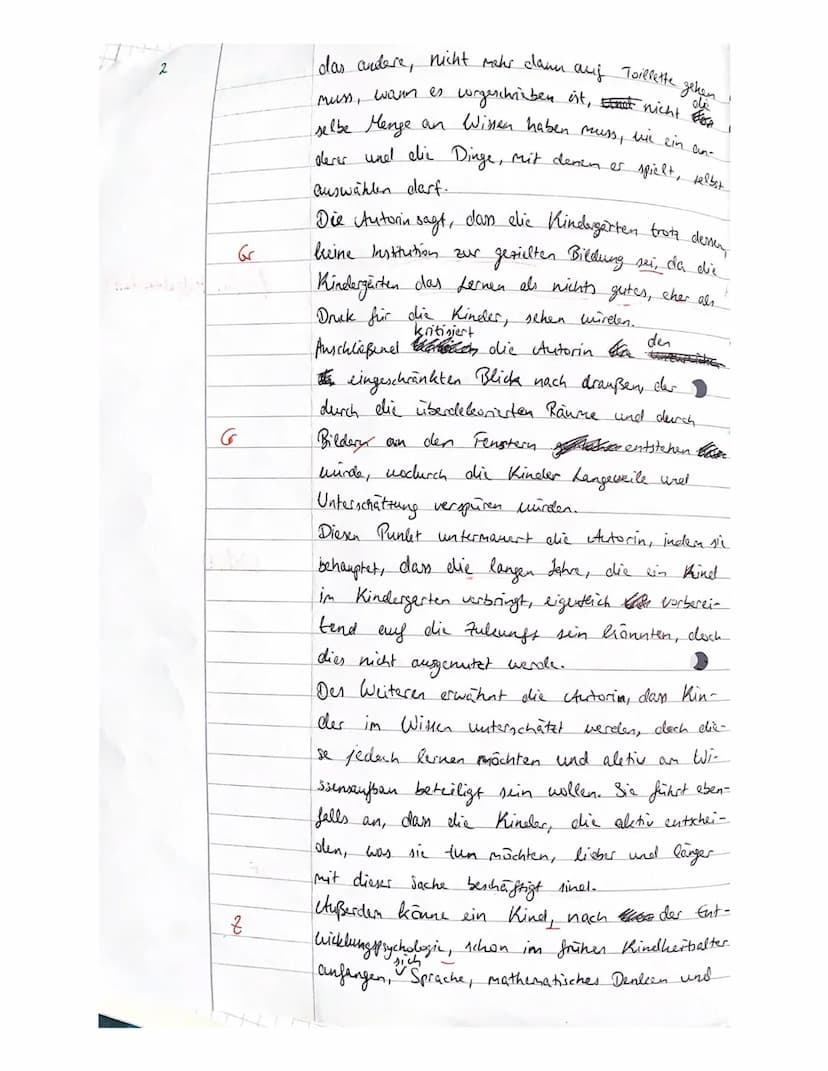 2
das andere, nicht mehr dann auf Toillette gehen
muss, wann es vorgeschrieben ist, nicht die
selbe Menge an Wissen haben muss, wie ein an-
derer und die Dinge, mit denen er spielt, selbst
auswählen darf.
Die Autorin sagt, dass die Kindergärten trotz dessen,
Gr keine Institution zur gezielten Bildung sei, da die
Kindergärten das Lernen als nichts gutes, eher als
Druck für die Kinder, sehen würden.
Anschließend kritisiert die Autorin den
eingeschränkten Blick nach draußen, der
durch die überdekorierten Räume und durch
Gr Bildern an den Fenstern entstehen
würde, wodurch die Kinder Langeweile und
Unterschätzung verspüren würden.
Diesen Punkt untermauert die Autorin, indem sie
behauptet, dass die langen Jahre, die ein Kind
im Kindergarten verbringt, eigentlich vorberei-
tend auf die Zukunft sein könnten, doch
dies nicht ausgenutzt werde.
Des Weiteren erwähnt die Autorin, dass Kin-
der im Wissen unterschätzt werden, doch die-
se jedoch lernen möchten und aktiv am Wi-
ssensaufbau beteiligt sein wollen. Sie führt eben-
falls an, dass die Kinder, die aktiv entschei-
den, was sie tun möchten, lieber und länger
mit dieser Sache beschäftigt sind.
Außerdem könne ein Kind, nach der Ent-
Z wicklungspsychologie, schon im frühen Kindheitsalter
anfangen, sich Sprache, mathematisches Denken und